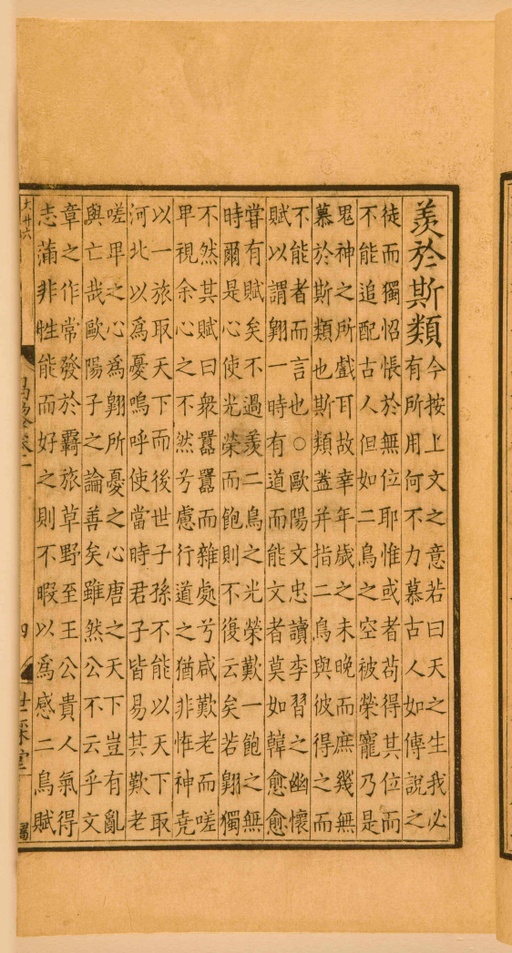 羨於斯類
今按上文之意若曰天之生我必
有所用何不力慕古人如傳說之
徒而獨怊悵於無位耶惟或者苟得其位而
不能追配古人但如二鳥之空被榮寵乃是
鬼神之所戲耳故幸年歲之未晚而庶幾無
慕於斯類也斯類蓋并指二鳥與彼得之而
不能者而言也○歐陽文忠讀李習之幽懷
賦以謂翺一時有道而能文者莫如韓愈愈
嘗有賦矣不過羨二鳥之光榮歎一飽之無
時爾是心使光榮而飽則不復云矣若翺獨
不然其賦曰衆囂囂而雜處兮咸歎老而嗟
卑視余心之不然兮慮行道之猶非惟神堯
以一旅取天下而後世子孫不能以天下取
河北以為憂嗚呼使當時君子皆易其歎老
嗟卑之心為翺所憂之心唐之天下豈有亂
與亡哉歐陽子之論善矣雖然公不云乎文
章之作常發於羇旅草野至王公貴人氣得
志滿非性能而好之則不暇以為感二鳥賦
四
世綵堂